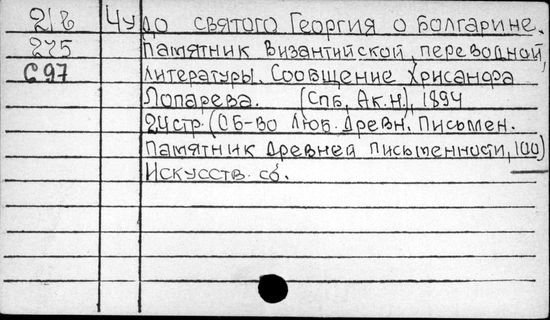 21в Чудо святого Георгия о болгарине.
275 Памятник византийской переводной
С97 литературы. Сообщение Хрисанфа
Лопарева. (Спб, Ак.н), 1894
24стр. (Об-во Люб. Древн. Письмен.
Памятник древней письменности, 100)
Искусств. сб.